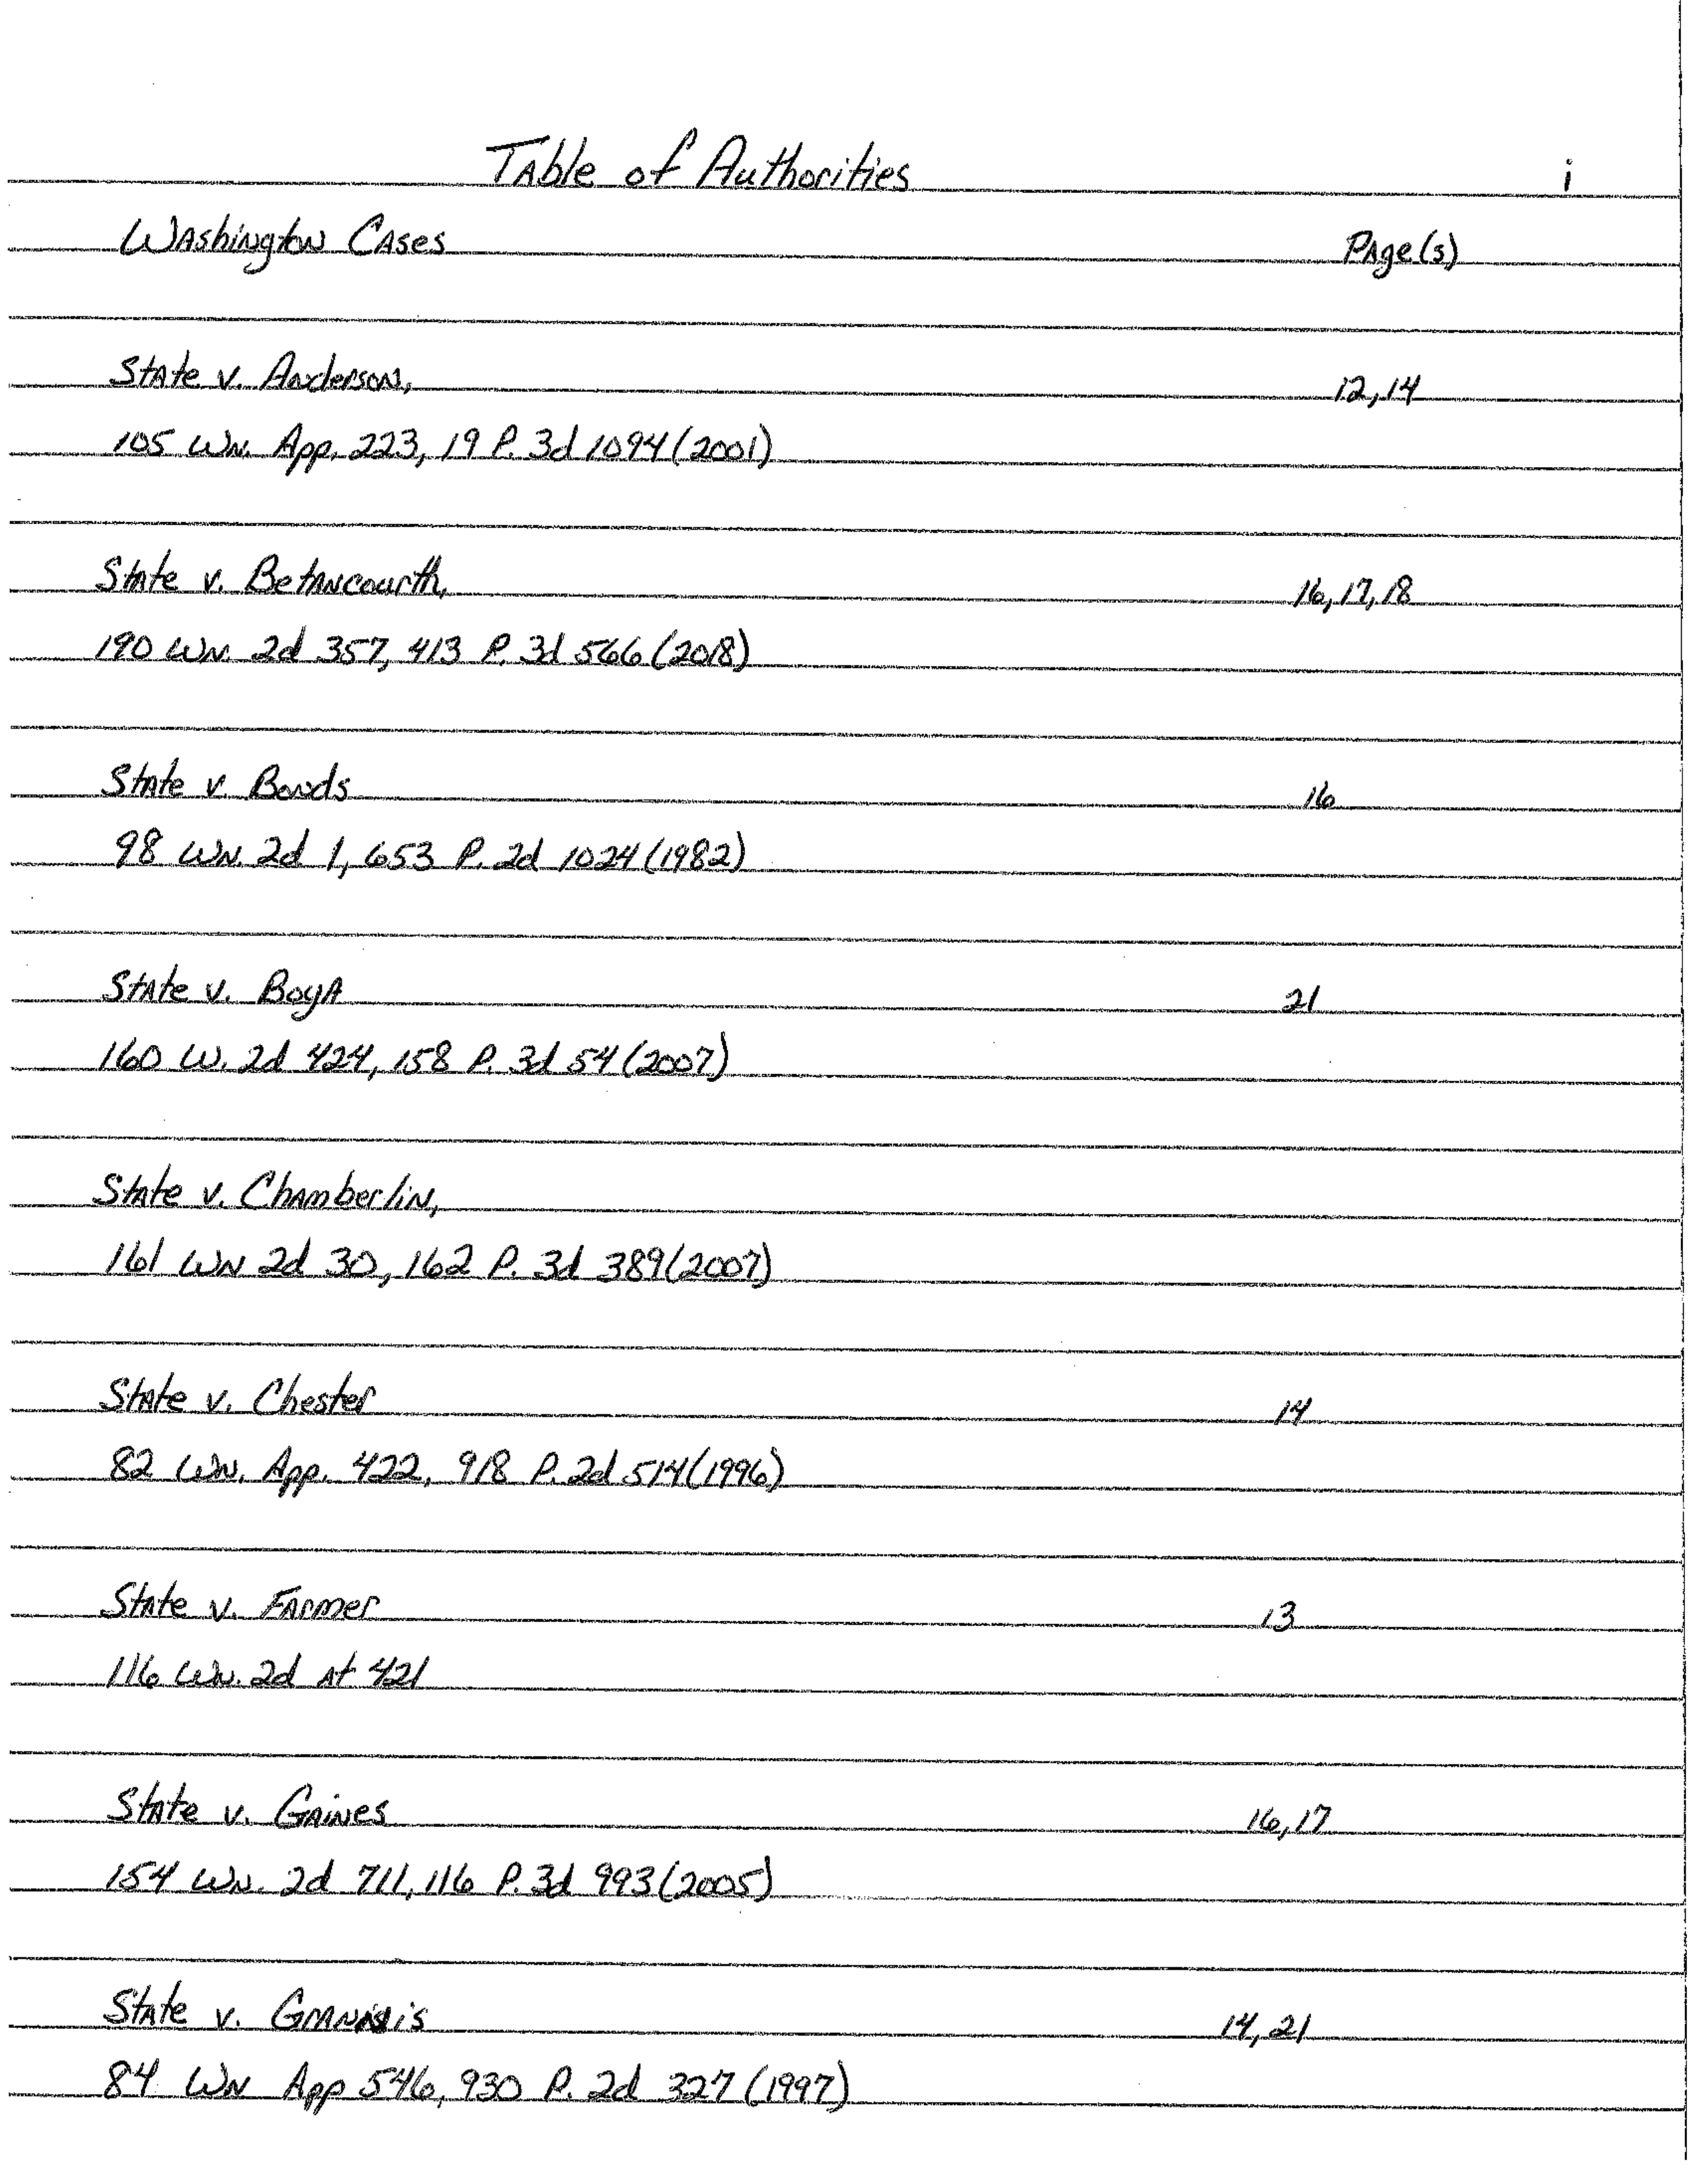 Table of Authorities i
Washington Cases Page(s)
State v. Anderson, 12, 14
105 Wn. App. 223, 19 P. 3d 1094 (2001)
State v. Betancourth, 16, 17, 18
190 Wn. 2d 357, 413 P. 3d 566 (2018)
State v. Bonds 16
98 Wn. 2d 1, 653 P. 2d 1024 (1982)
State v. Boya 21
160 W. 2d 424, 158 P. 3d 54 (2007)
State v. Chamberlin,
161 Wn 2d 30, 162 P. 3d 389 (2007)
State v. Chester 14
82 Wn. App. 422, 918 P. 2d 514 (1996)
State v. Farmer 13
116 Wn. 2d at 421
State v. Gaines 16, 17
154 Wn. 2d 711, 116 P. 3d 993 (2005)
State v. 14, 21
84 Wn App 546, 930 P. 2d 327 (1997)